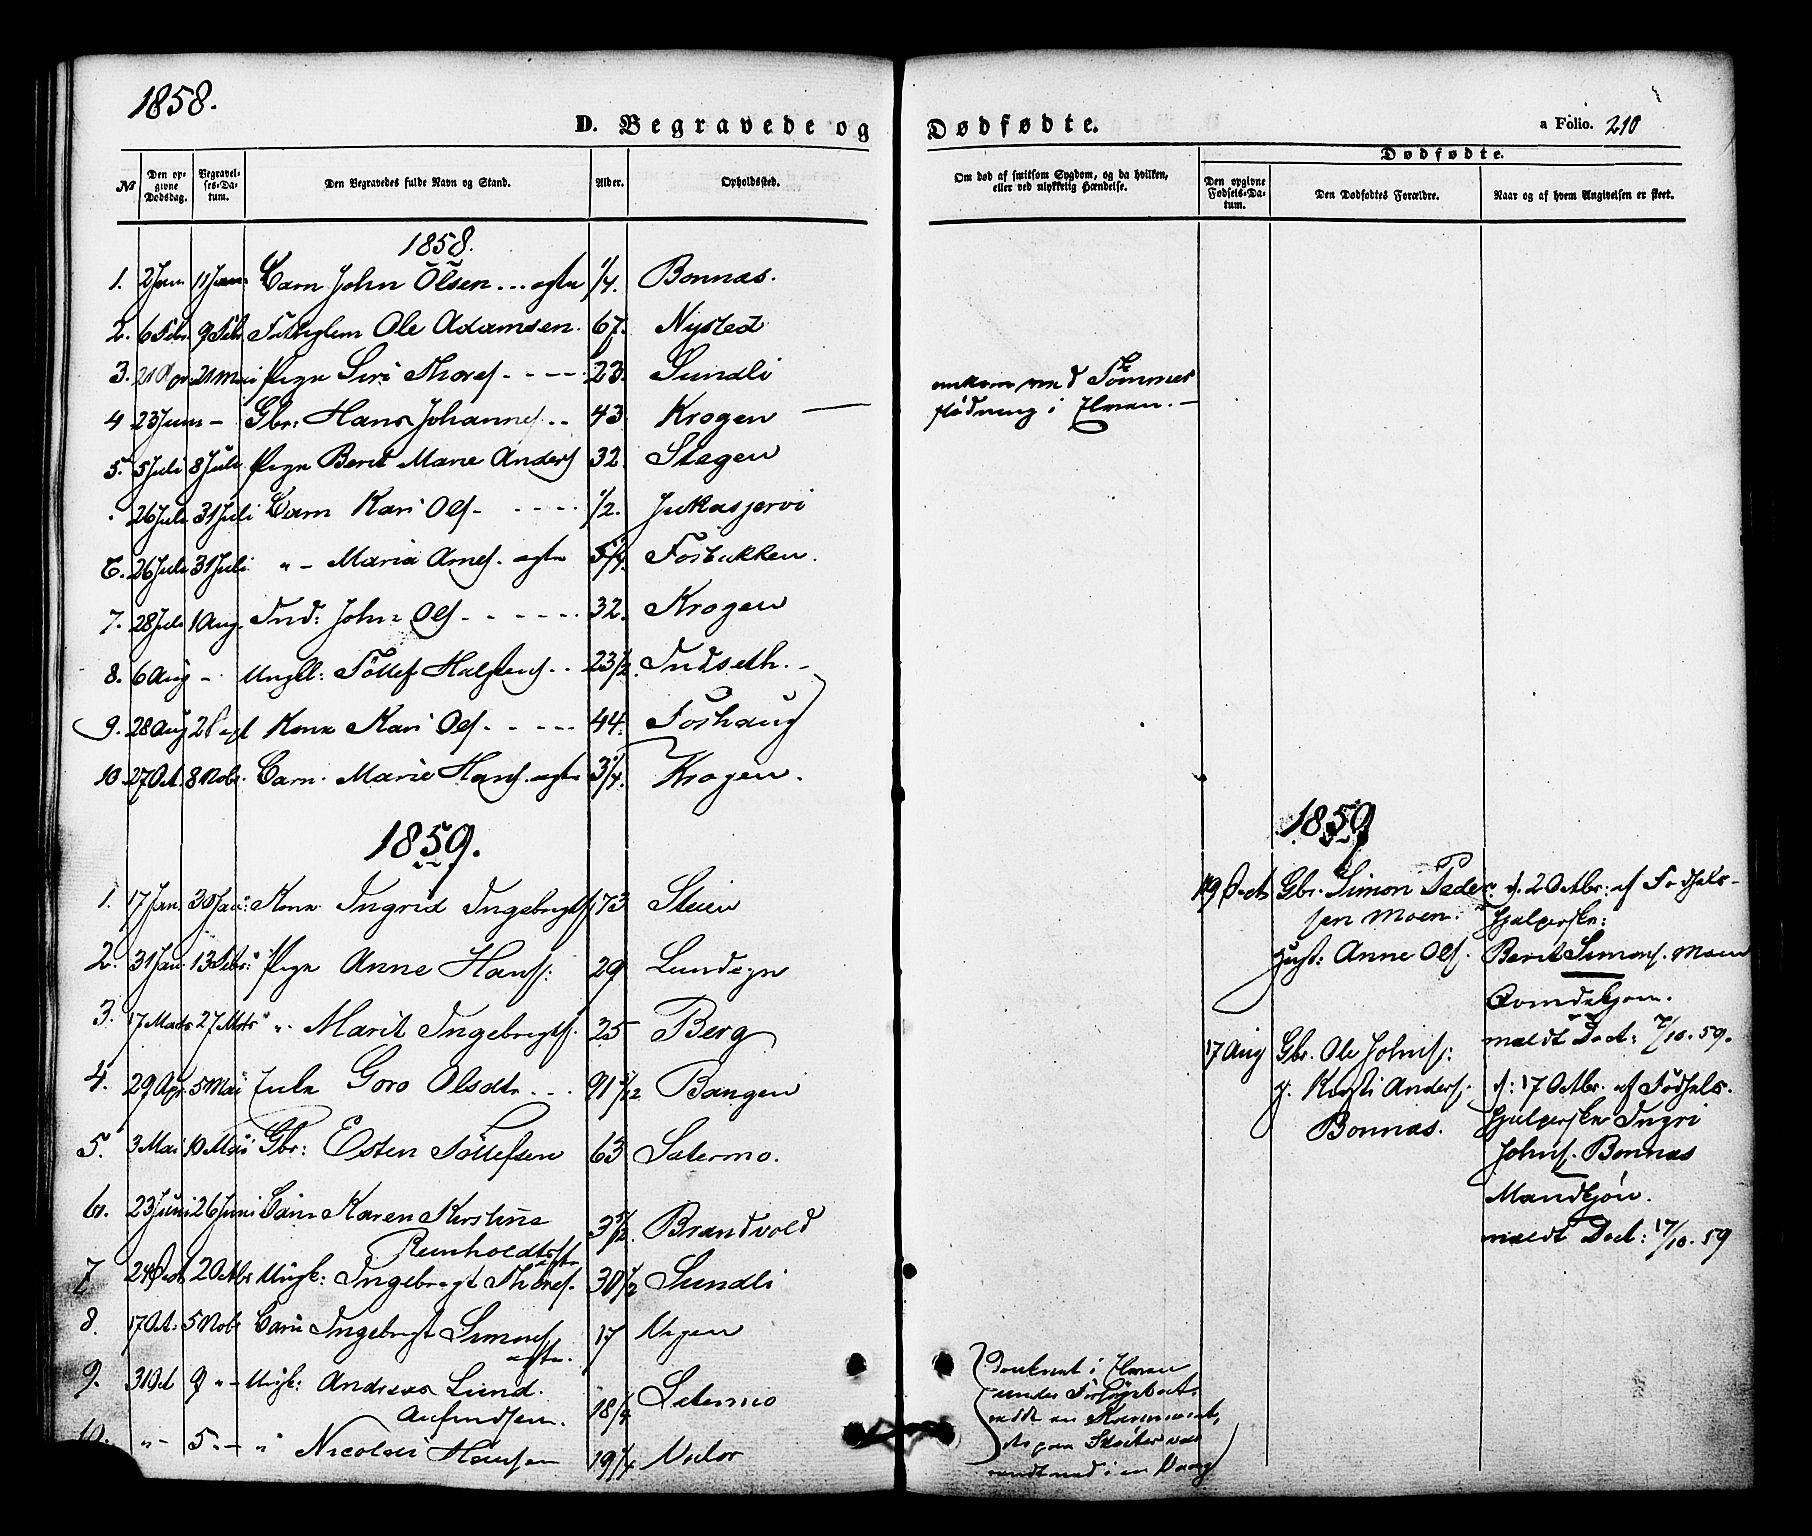 1858.
D. Begravede og
Dødfødte.
a Folio. 210
Dødfødte.
No
Den opgivne Dødsdag.
Begravelses-Datum.
Den Begravedes fulde Navn og Stand.
Alder.
Opholdssted.
Om død af smitsom Sygdom, og da hvilken, eller ved ulykkelig Hændelse.
Den opgivne Fødsels-Datum.
Den Dødfødtes Forældre.
Naar og af hvem Angivelsen er skeet.
1858.
1. 2 Jan. 11 Jan. Barn John Olsen ... ægte 1/4. Bonnas.
2. 6 Febr. 9 Febr. Ole Adamsen. 67. Nysted
3. 21 Apr. 21 Mai Pige Siri Thoresd. - - - - 23. Sundli
4 23 Juni - Gbr: Hans Johannes. .. 43 Krogen
omkom ved Tømmer
flødning i Elven. -
5. 5 Juli 8 Juli Pige Berit Marie Andersd 32. Stegen
. 26 Juli 31 Juli Barn Kari Olsd - - - - 1/2. Jukasjervi
6. 26 Juli 31 Juli " - Maria Arnesd. ægte 5/4. Fosbakken.
7. 28 Juli 1 Aug. Ind: John Ols - - - - - - 32. Krogen
8. 6 Aug - Ungk: Tollef Halstens .. 23 1/2. Indseth. -
9. 28 Aug 2 Sept Kone Kari Olsd - - - - 44. Foshaug
10. 27 Oct. 8 Nobr. Barn. Marie Hansd. ægte 3/4. Krogen.
1859.
1. 17 Jan. 30 Jan: Kone Ingrid Ingebrigtsd. 73 Steien
2. 31 Jan. 13 Febr: Pige Anne Hansd: 29 Lundegn
3. 17 Marts 27 Mrts " " Marit Ingebrigtsd. 25 Berg
4. 29 Apr. 5 Mai Enke Goro Olsdtr - - . 91 Bangen
5. 3 Mai 10 Mai Gbr: Esten Tollefsen 63 Sætermo.
6. 23 Juni 26 Juni Barn Karen Kirstine
Reinholdtsdtr
ægte
3 Brandvold
7 2 Octbr Ungk: Ingebrigt Thores. 30 1/2 Sundli
8. 17 Oct: 5 Nobr Barn Ingebrigt Simons
ægte.
17
9. 31 Oct 9 " - Ungk: Andreas Lund.
18 Sætermo
10. " - 5 - " Nicolai Hansen 19 1/4
1859
Gbr. Simon Peder
sen Moen.
Hust: Anne Olsd.
d. 2 Octbr: af Fødsels-
hjelperske:
Berit Simonsd. Moen
Qvindekjøn.
meldt Doct: 7/10. 59.
17 Aug Gbr. Ole Johns:
g. Kirsti Andersd.
Bonnas.
d: 17 Octbr. af Fødsels.
hjelperske Ingri
Johnsd. Bonnas
Mandkjøn.
meldt Doct: 17/10. 59
Druknet i Elven
under Forsøg